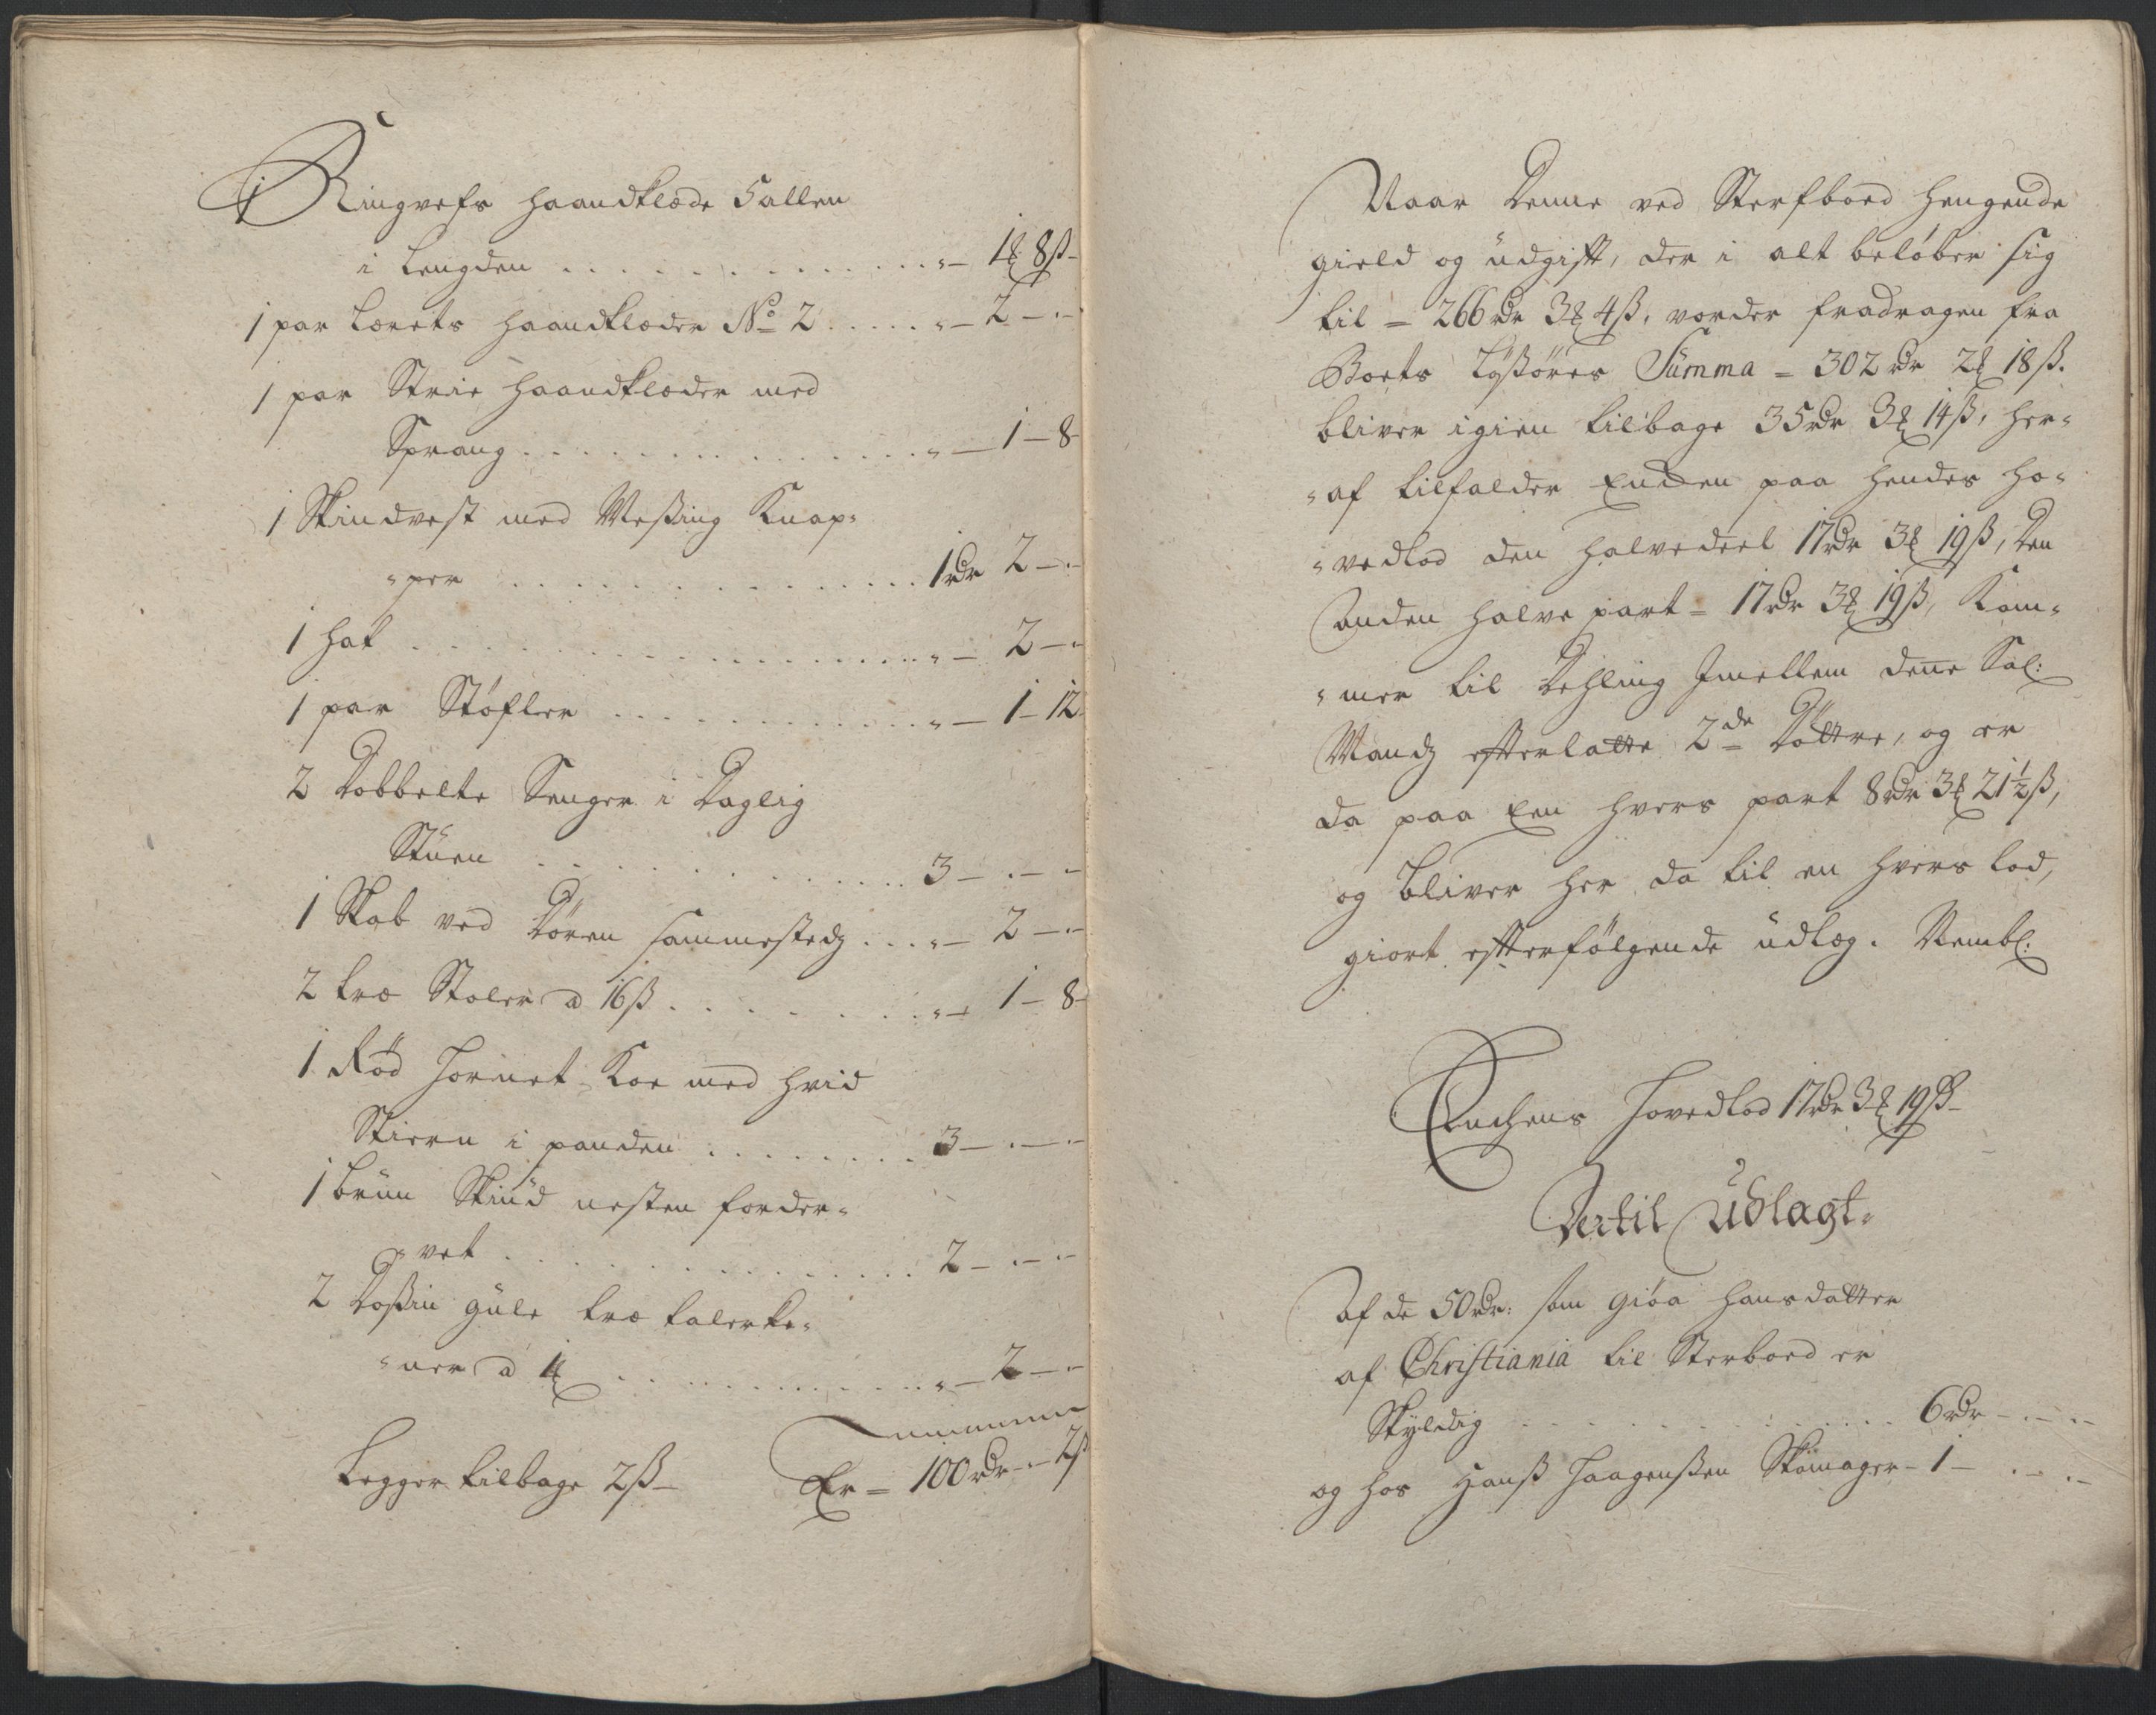 1 Ringvefs haandklæde 5 allen
i lengden . . . . . . . . . . „ — 1 ℳ 8 ß –
1 par lærets haandklæder No 2 . . . . . „ — 2 – „ –
1 par Strie haandklæder med
Sprang . . . . . . . . . . . „ — 1 – 8
1 Skindvest med Messing Knap-
-per . . . . . . . . . . 1 rdr 2 – „ –
1 hat . . . . . . . . . . . „ — 2 – „
1 par Støfler . . . . . . . . . . „ — 1 – 12
2 Dobbelte Senger i Daglig
Stuen . . . . . . . . . . 3 – „ – „
1 Skab ved Dören sammestedz . . . „ — 2 – „
2 træ Stoler a 16 ß . . . . . . . „ — 1 – 8
1 Rød Hornet Koe med hvid
Stiern i panden . . . . . . . . 3 – „ – „
1 brun Skind nesten forder-
-vet . . . . . . . . . . . 2 – „ – „
2 Dossin gule træ talerke-
-ner a 1 ℳ . . . . . . . . . . „ — 2 – „
Legger tilbage 2 ß — Er = 100 rdr – „ – 2 ß
Naar Denne ved Sterfboed hengende
gield og udgift, der i alt beløber sig
til = 266 rdr 3 ℳ 4 ß, vorder fradragen fra
Boets Løssøres Summa = 302 rdr 2 ℳ 18 ß.
bliver igien tilbage 35 rdr 3 ℳ 14 ß, her-
-af tilfalder Encken paa hendes ho-
-vedlod den halvedeel 17 rdr 3 ℳ 19 ß, Den
anden halve part = 17 rdr 3 ℳ 19 ß, Kom-
-mer til Dehling Imellem denne Sal:
Mandz efterlatte 2de Døttre, og er
da paa Een hvers part 8 rdr 3 ℳ 21½ ß,
og bliver her da til en hvers lod,
giort efterfølgende udlæg. Nembl:
Enchens Hovedlod 17 rdr 3 ℳ 19 ß –
Dertil Udlagt.
Af de 50 rdr: som Giøa Hansdatter
af Christiania til Sterboed er
Skyldig . . . . . . . . . . . 6 rdr – „ – „
og hos Hanß Haagenßen Skomager – 1 – „ – „